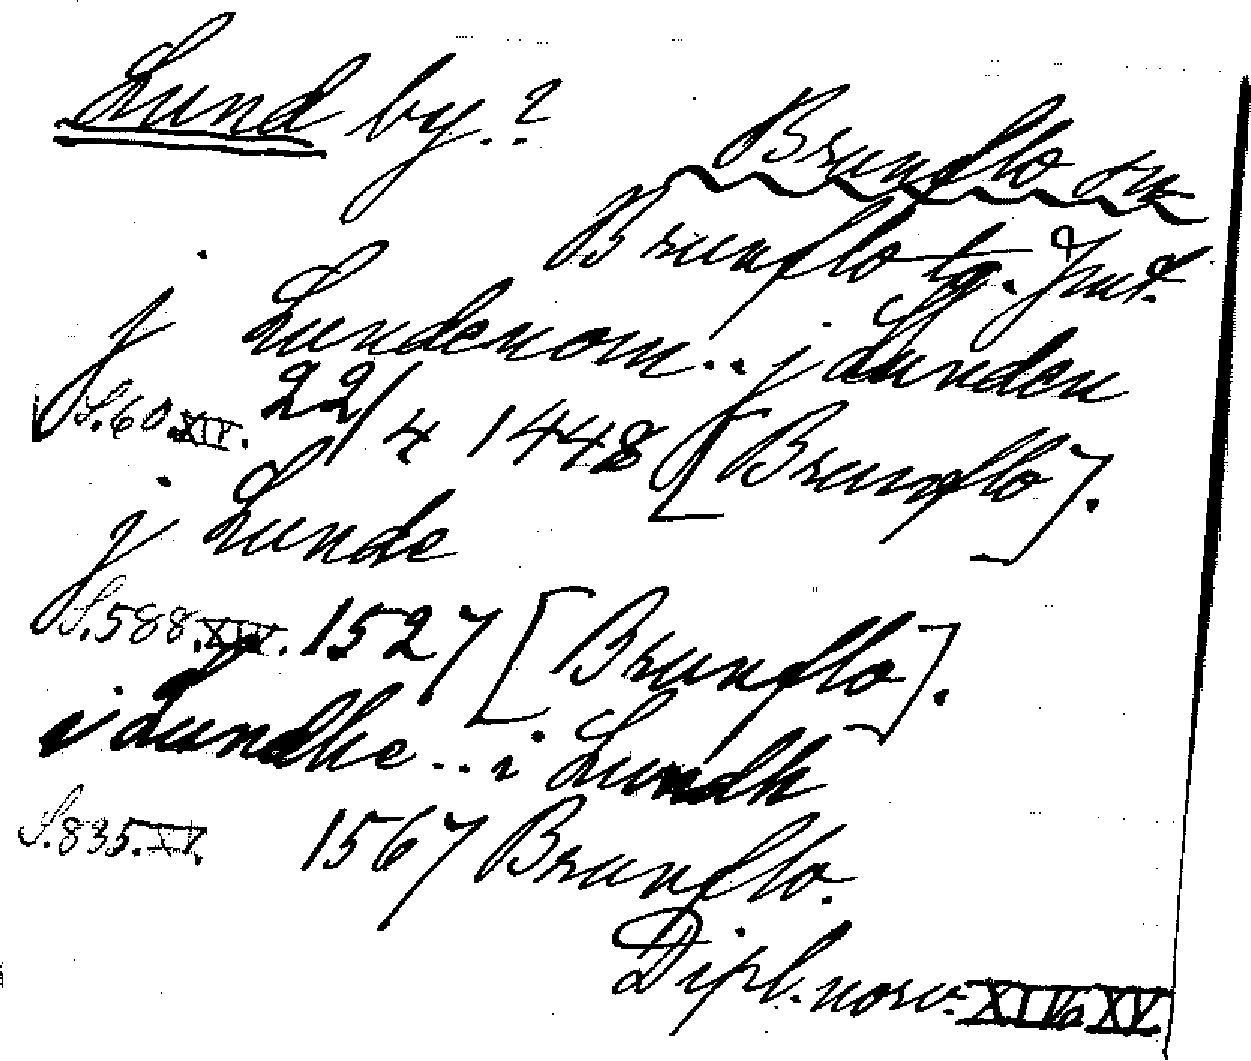 Lund by.?
Brunflo sn
Brunflo tg. Jmt.
j Lundenom .. j Lunden
S.60.XIV. 22/4 1448 [Brunflo].
j Lunde
S.588.XIV. 1527 [Brunflo].
i Lundhe .. i Lundh
S.835.XV. 1567 Brunflo.
Dipl. norv. XIV o XV.